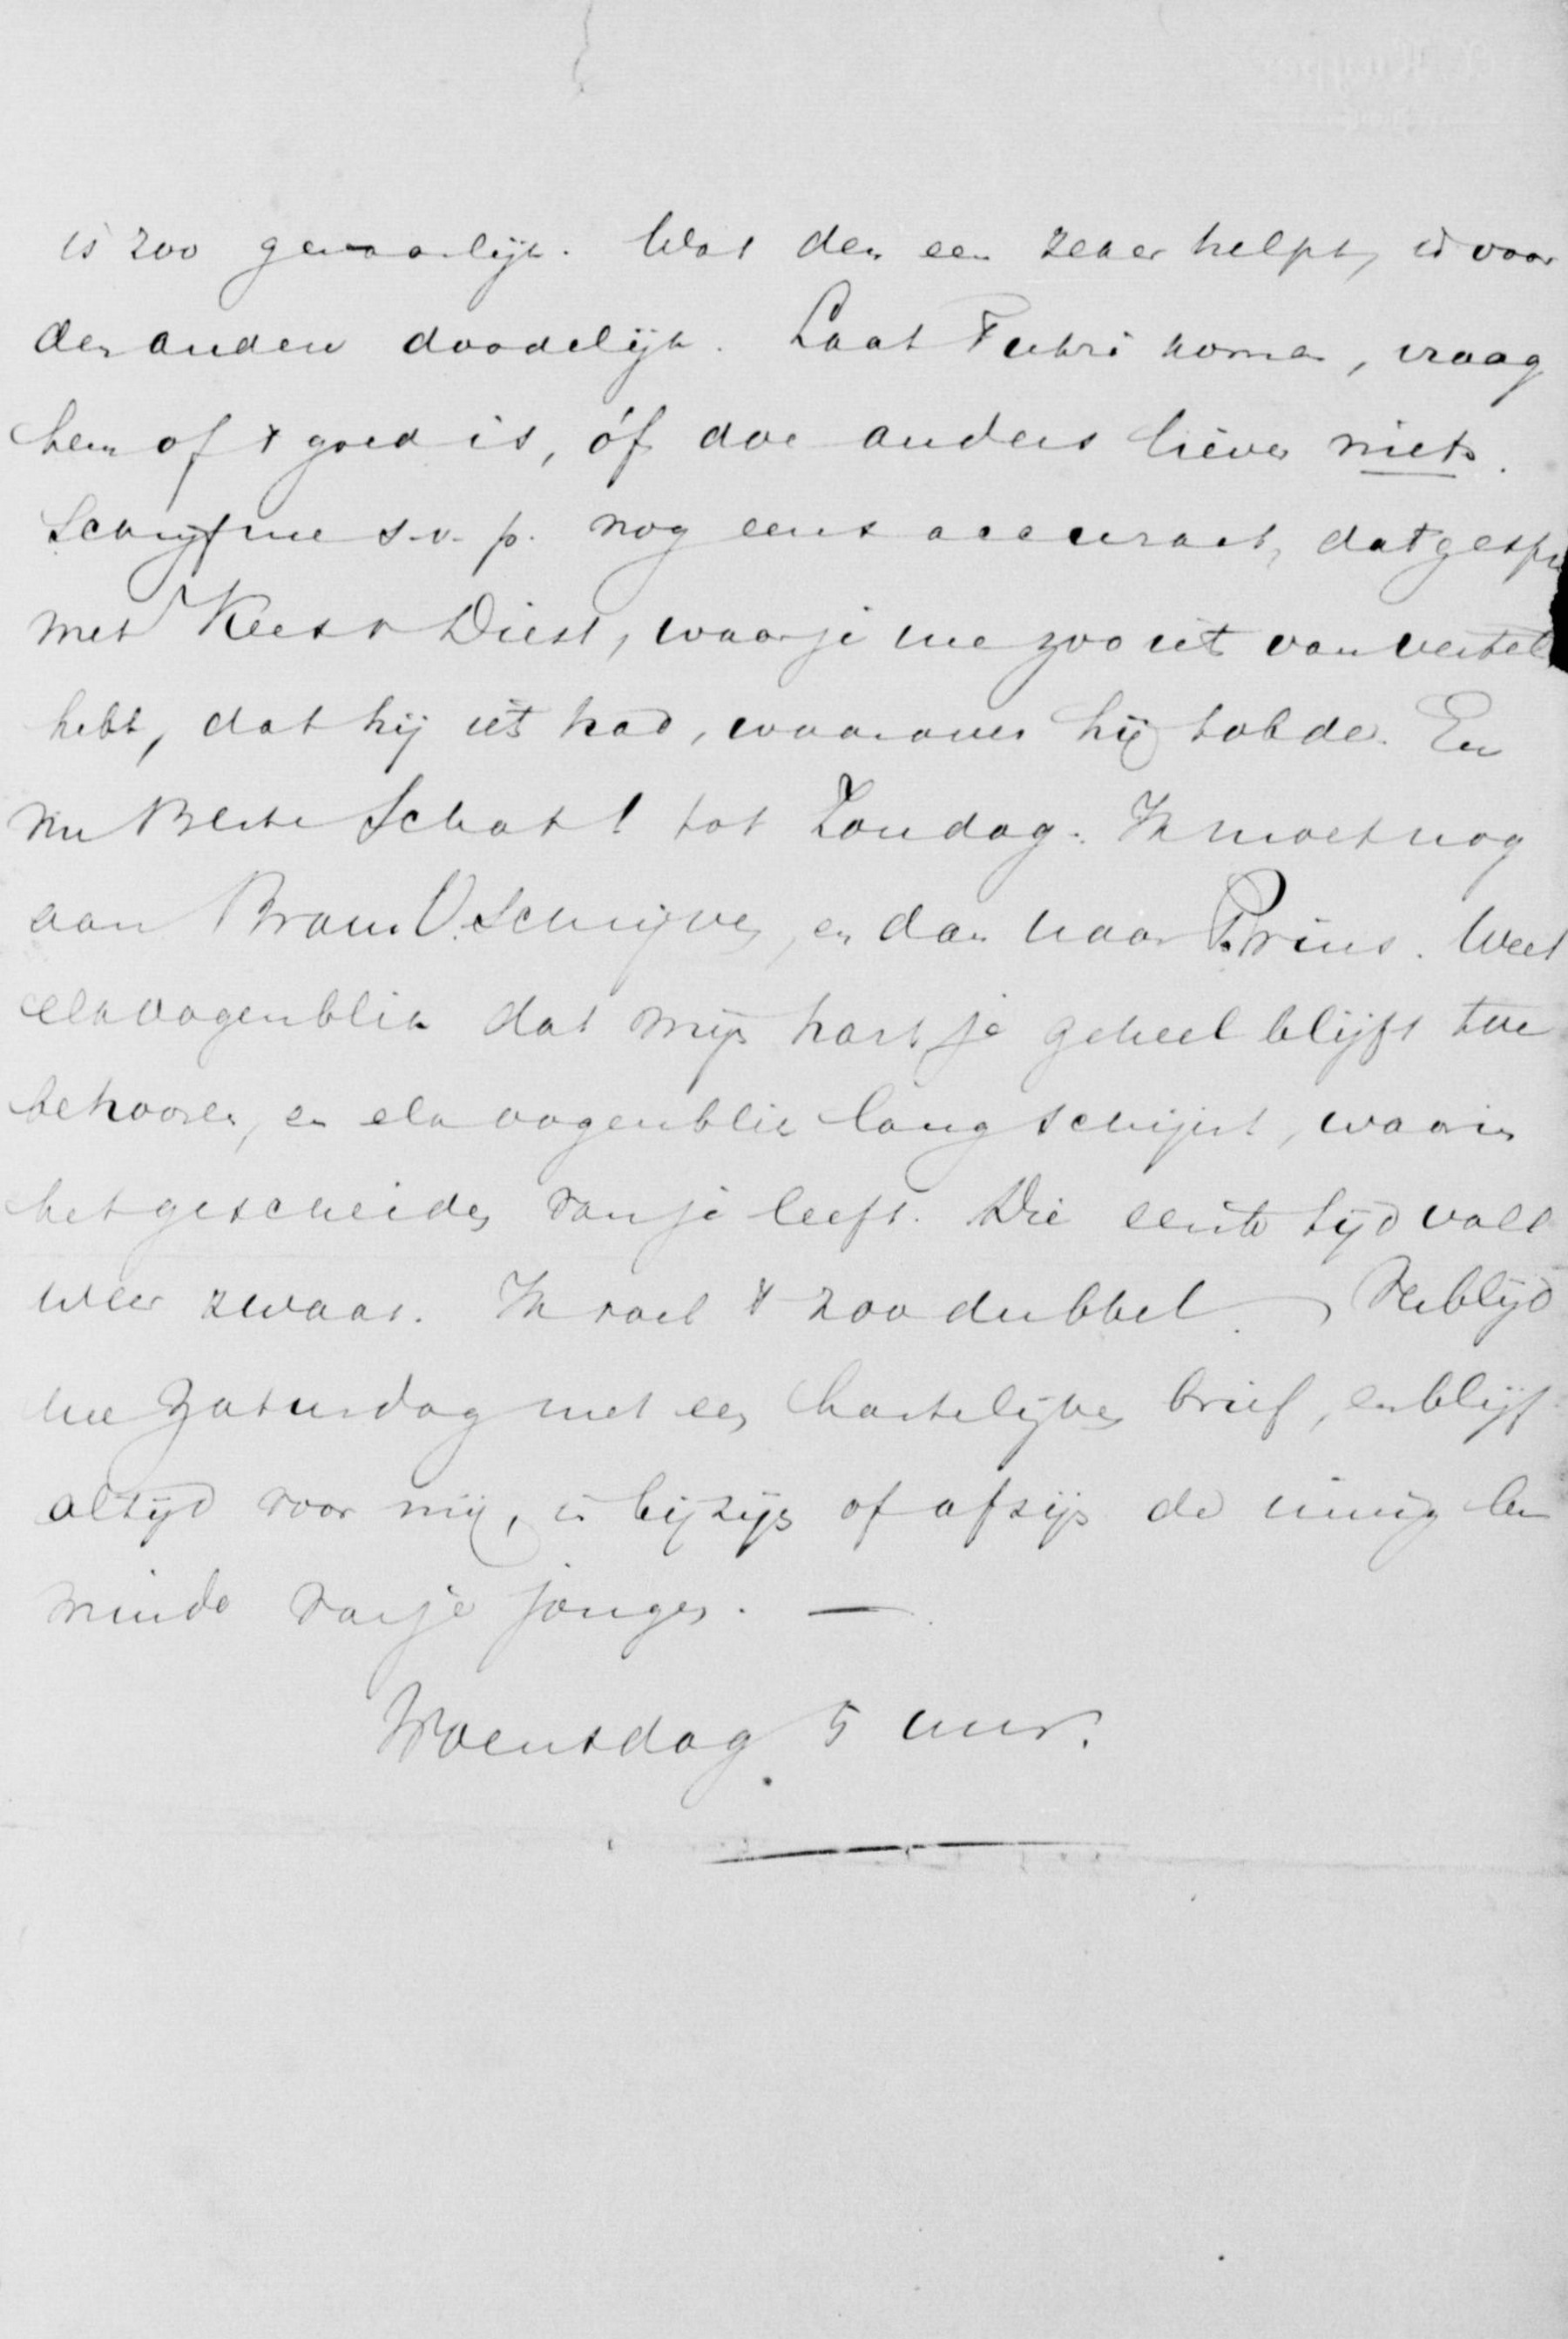 is zoo gevaarlijk. Wat den een zeker helpt, is voor
den anderen doodelijk. Laat Fuhri komen, vraag
hem of 't goed is, óf doe anders liever niets.
Schrijf me s.v.p. nog eens accuraat, dat gespr
met Kees v Diest, waar je me zoo iets van vertel
hebt, dat hij iets had, waarover hij tobde. En
nu Beste Schat! tot Zondag. Ik moet nog
aan Bram V. schrijven, en dan naar Prins. Weet
elk oogenblik dat mijn hart je geheel blijft toe
behooren, en elk oogenblik lang schijnt, waarin
het gescheiden van je leeft. Die eerste tijd valt
weer zwaar. Ik voel 't zoo dubbel. Verblijd
me Zaturdag met een hartelijken brief, en blijf
altijd voor mij, in bijzijn of afzijn de innig be
minde van je jongen. —
Woensdag 5 uur.